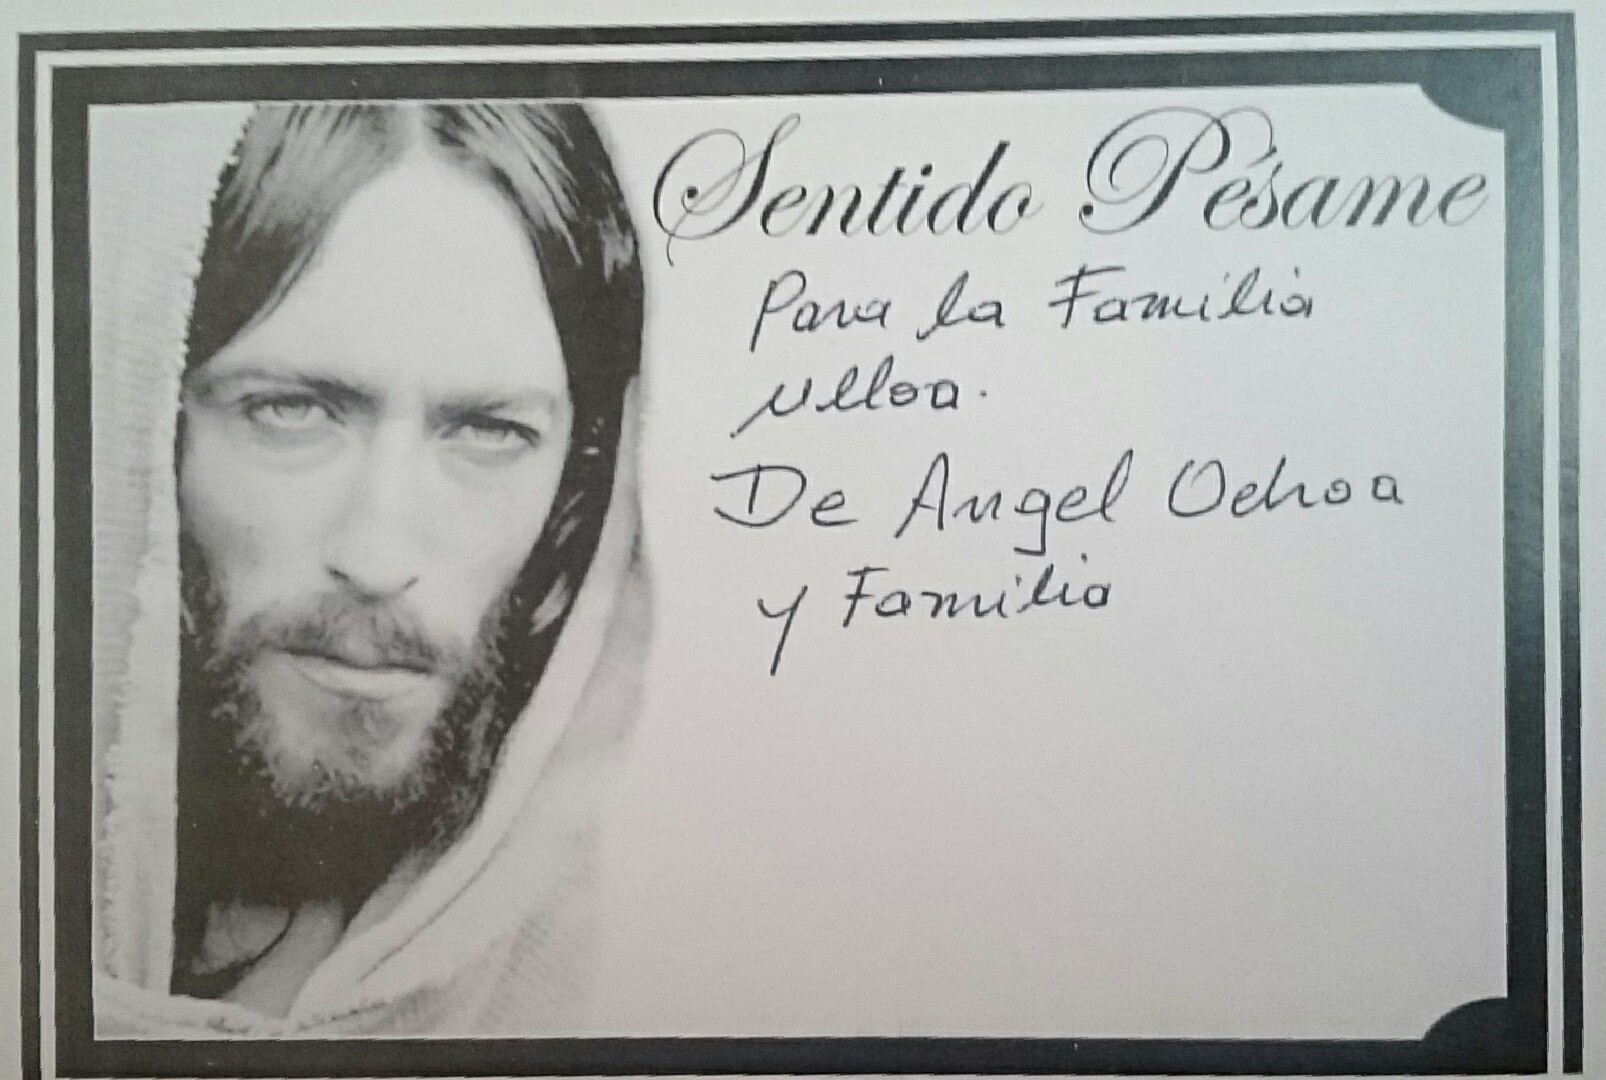 Sentido Pésame
Para la Familia
Ulloa.
De Angel Ochoa
y Familia